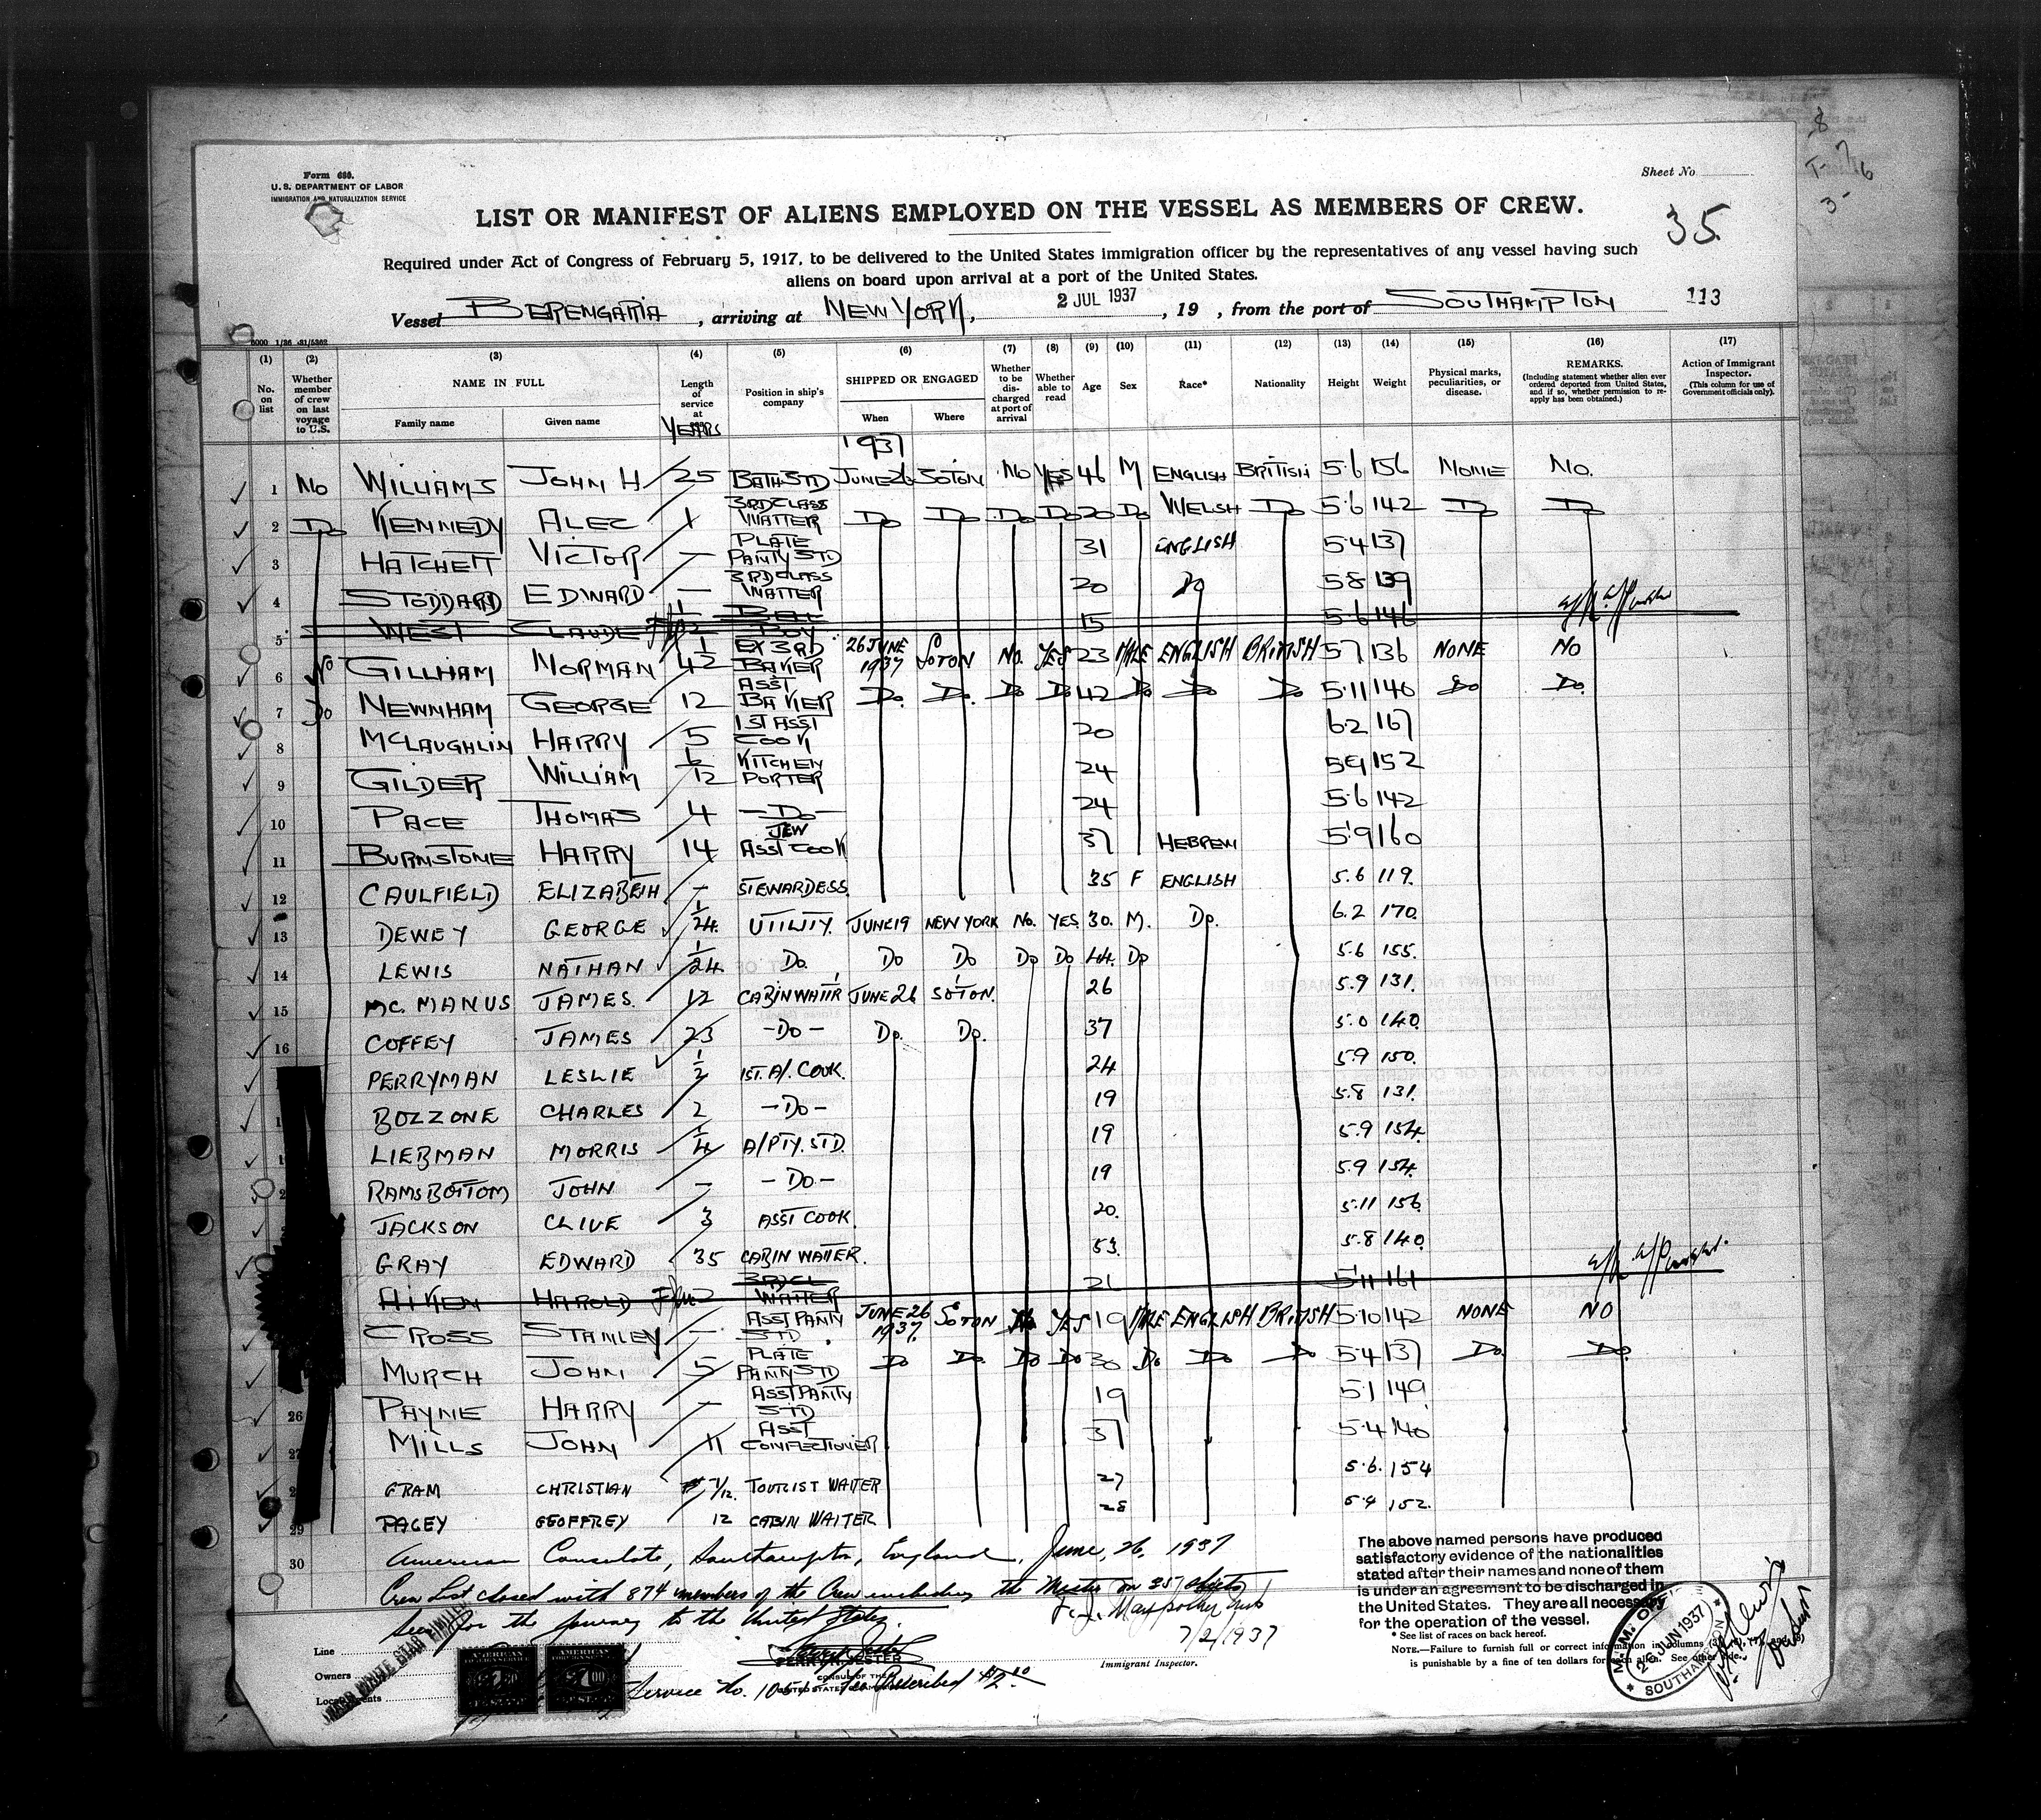 8
T-
3-
Form 680.
U. S. DEPARTMENT OF LABOR
IMMIGRATION AND NATURALIZATION SERVICE
Sheet No
35
LIST OR MANIFEST OF ALIENS EMPLOYED ON THE VESSEL AS MEMBERS OF CREW.
Required under Act of Congress of February 5, 1917, to be delivered to the United States immigration officer by the representatives of any vessel having such
aliens on board upon arrival at a port of the United States.
Vessel BERENGARIA, arriving at NEW YORK, 2 JUL 1937, 19 , from the port of SOUTHAMPTON 113
(1) (2) (3) (4) (5) (6) (7) (8) (9) (10) (11) (12) (13) (14) (15) (16) (17)
No. on list
Whether member of crew on last voyage to U.S.
NAME IN FULL
Family name
Given name
Length of service at
YEARS
Position in ship's company
SHIPPED OR ENGAGED
When
Where
Whether to be discharged at port of arrival
Whether able to read
Age
Sex
Race*
Nationality
Height
Weight
Physical marks, peculiarities, or disease.
REMARKS.
(Including statement whether alien ever ordered deported from United States, and if so, whether permission to re-apply has been obtained.)
Action of Immigrant Inspector.
(This column for use of Government officials only).
1937
1 No WILLIAMS JOHN H 25 BATH STD JUNE 26 SOTON No YES 46 M ENGLISH BRITISH 5.6 156 NONE NO.
2 Do KENNEDY ALEC 1 3RD CLASS WAITER Do Do Do Do 20 Do WELSH Do 5.6 142 Do Do
3 HATCHETT VICTOR — PLATE PANTY STD 31 ENGLISH 5.4 137
4 STODDARD EDWARD — 3RD CLASS WAITER 20 Do 5.8 139
5 WEST CLAUDE BELL BOY 15 5.6 146
6 No GILLHAM NORMAN 1/42 EX 3RD BAKER 26 JUNE 1937 SOTON NO. YES 23 MALE ENGLISH BRITISH 5.7 136 NONE NO
7 Do NEWNHAM GEORGE 12 ASST BAKER Do. Do. Do Do 42 Do Do Do 5.11 140 Do Do.
8 McLAUGHLIN HARRY 5 1ST ASST COOK 20 6.2 167
9 GILDER WILLIAM /12 KITCHEN PORTER 24 5.9 152
10 PACE THOMAS 4 —Do— 24 5.6 142
11 BURNSTONE HARRY 14 JEW ASST COOK 37 HEBREW 5.9 160
12 CAULFIELD ELIZABETH — STEWARDESS 35 F ENGLISH 5.6 119.
13 DEWEY GEORGE 1/24. UTILITY. JUNE 19 NEW YORK No. YES. 30. M. Do. 6.2 170.
14 LEWIS NATHAN 1/24. Do. Do Do Do Do 44. Do 5.6 155.
15 MC. MANUS JAMES. 12 CABIN WAITR JUNE 26 SOTON. 26 5.9 131.
16 COFFEY JAMES 23 -Do- Do. Do. 37 5.0 140.
PERRYMAN LESLIE 1/2 1ST. A/. COOK. 24 5.9 150.
BOZZONE CHARLES 2 -Do- 19 5.8 131.
LIEBMAN MORRIS 1/4 A/PTY. STD. 19 5.9 154.
RAMSBOTTOM JOHN — - Do.- 19 5.9 154.
JACKSON CLIVE 3 ASST COOK. 20. 5.11 156.
GRAY EDWARD 35 CABIN WAITER. 53. 5.8 140.
AIKEN HAROLD 3RD CL WAITER 21 5.11 161
CROSS STANLEY — ASST PANTY STD JUNE 26 1937. SOTON YES 19 MALE ENGLISH BRITISH 5.10 142 NONE NO
MURCH JOHN 5 PLATE PANTY STD Do Do. Do Do 30 Do Do Do 5.4 137 Do. Do.
26 PAYNE HARRY — ASST PANTY STD 19 5.1 149
27 MILLS JOHN 11 ASST CONFECTIONER 37 5.4 140
GRAM CHRISTIAN 1/12. TOURIST WAITER 27 5.6. 154
29 PAGEY GEOFFREY 12 CABIN WAITER 28 5.9 152.
30 American Consulate, Southampton, England, June, 26, 1937
Crew List closed with 874 members of the Crew including the Master on 35 sheets
Seen for the journey to the United States.
7/2/1937
The above named persons have produced
satisfactory evidence of the nationalities
stated after their names and none of them
is under an agreement to be discharged in
the United States. They are all necessary
for the operation of the vessel.
* See list of races on back hereof.
NOTE.—Failure to furnish full or correct information in columns
is punishable by a fine of ten dollars for each alien. See other side.
Line
Owners
Local Agents
WHITE STAR LIMITED
CONSUL OF THE
UNITED STATES OF AMERICA
Immigrant Inspector.
Service No. Fee Prescribed $2.00
M.M. OFFICE
26 JUN 1937
SOUTHAMPTON